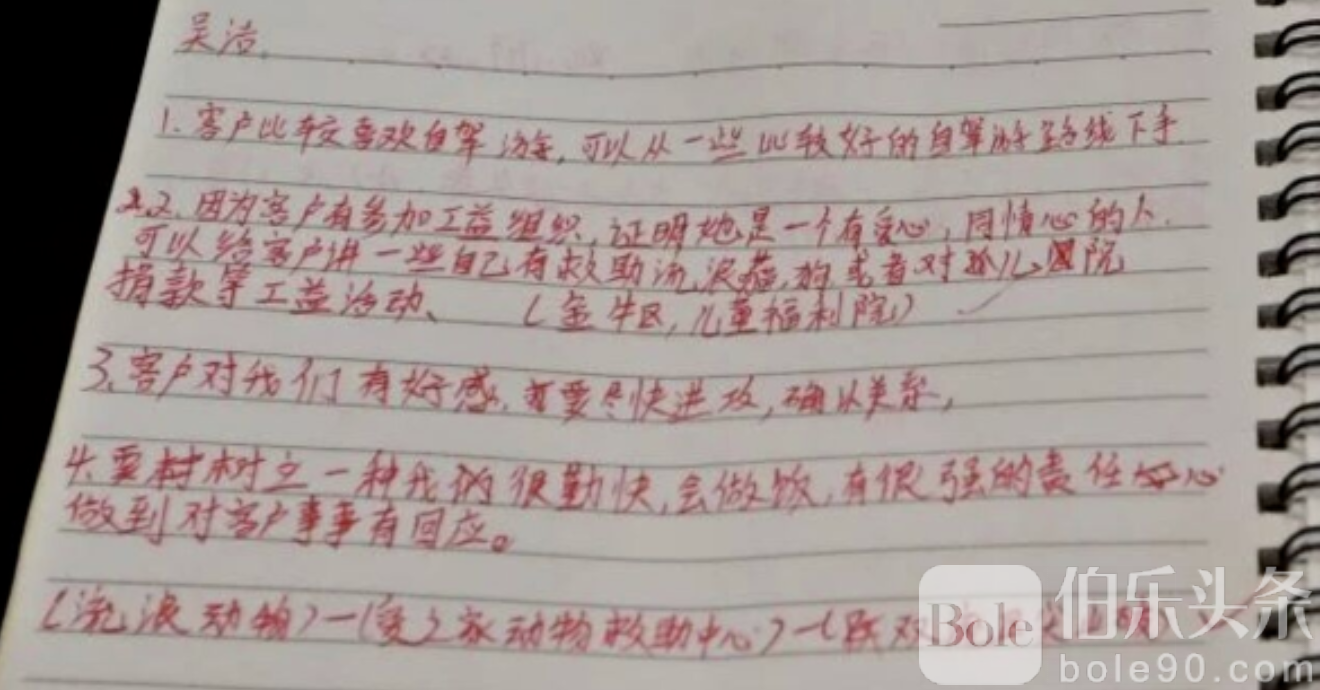 吴洁.
1. 客户比较喜欢自驾游,可以从一些比较好的自驾游路线下手.
2.2、因为客户有参加工益组织,证明她是一个有爱心,同情心的人.
可以给客户讲一些自己有救助流浪猫,狗或者对孤儿院
捐款等工益活动、 (金牛区,儿童福利院)
3、客户对我们有好感、要尽快进攻,确认关系,
4、要树树立一种我们很勤快,会做饭,有很强的责任心
做到对客户事事有回应。
(流浪动物)—(爱之家动物救助中心)—(
Bole 伯乐头条
bole90.com